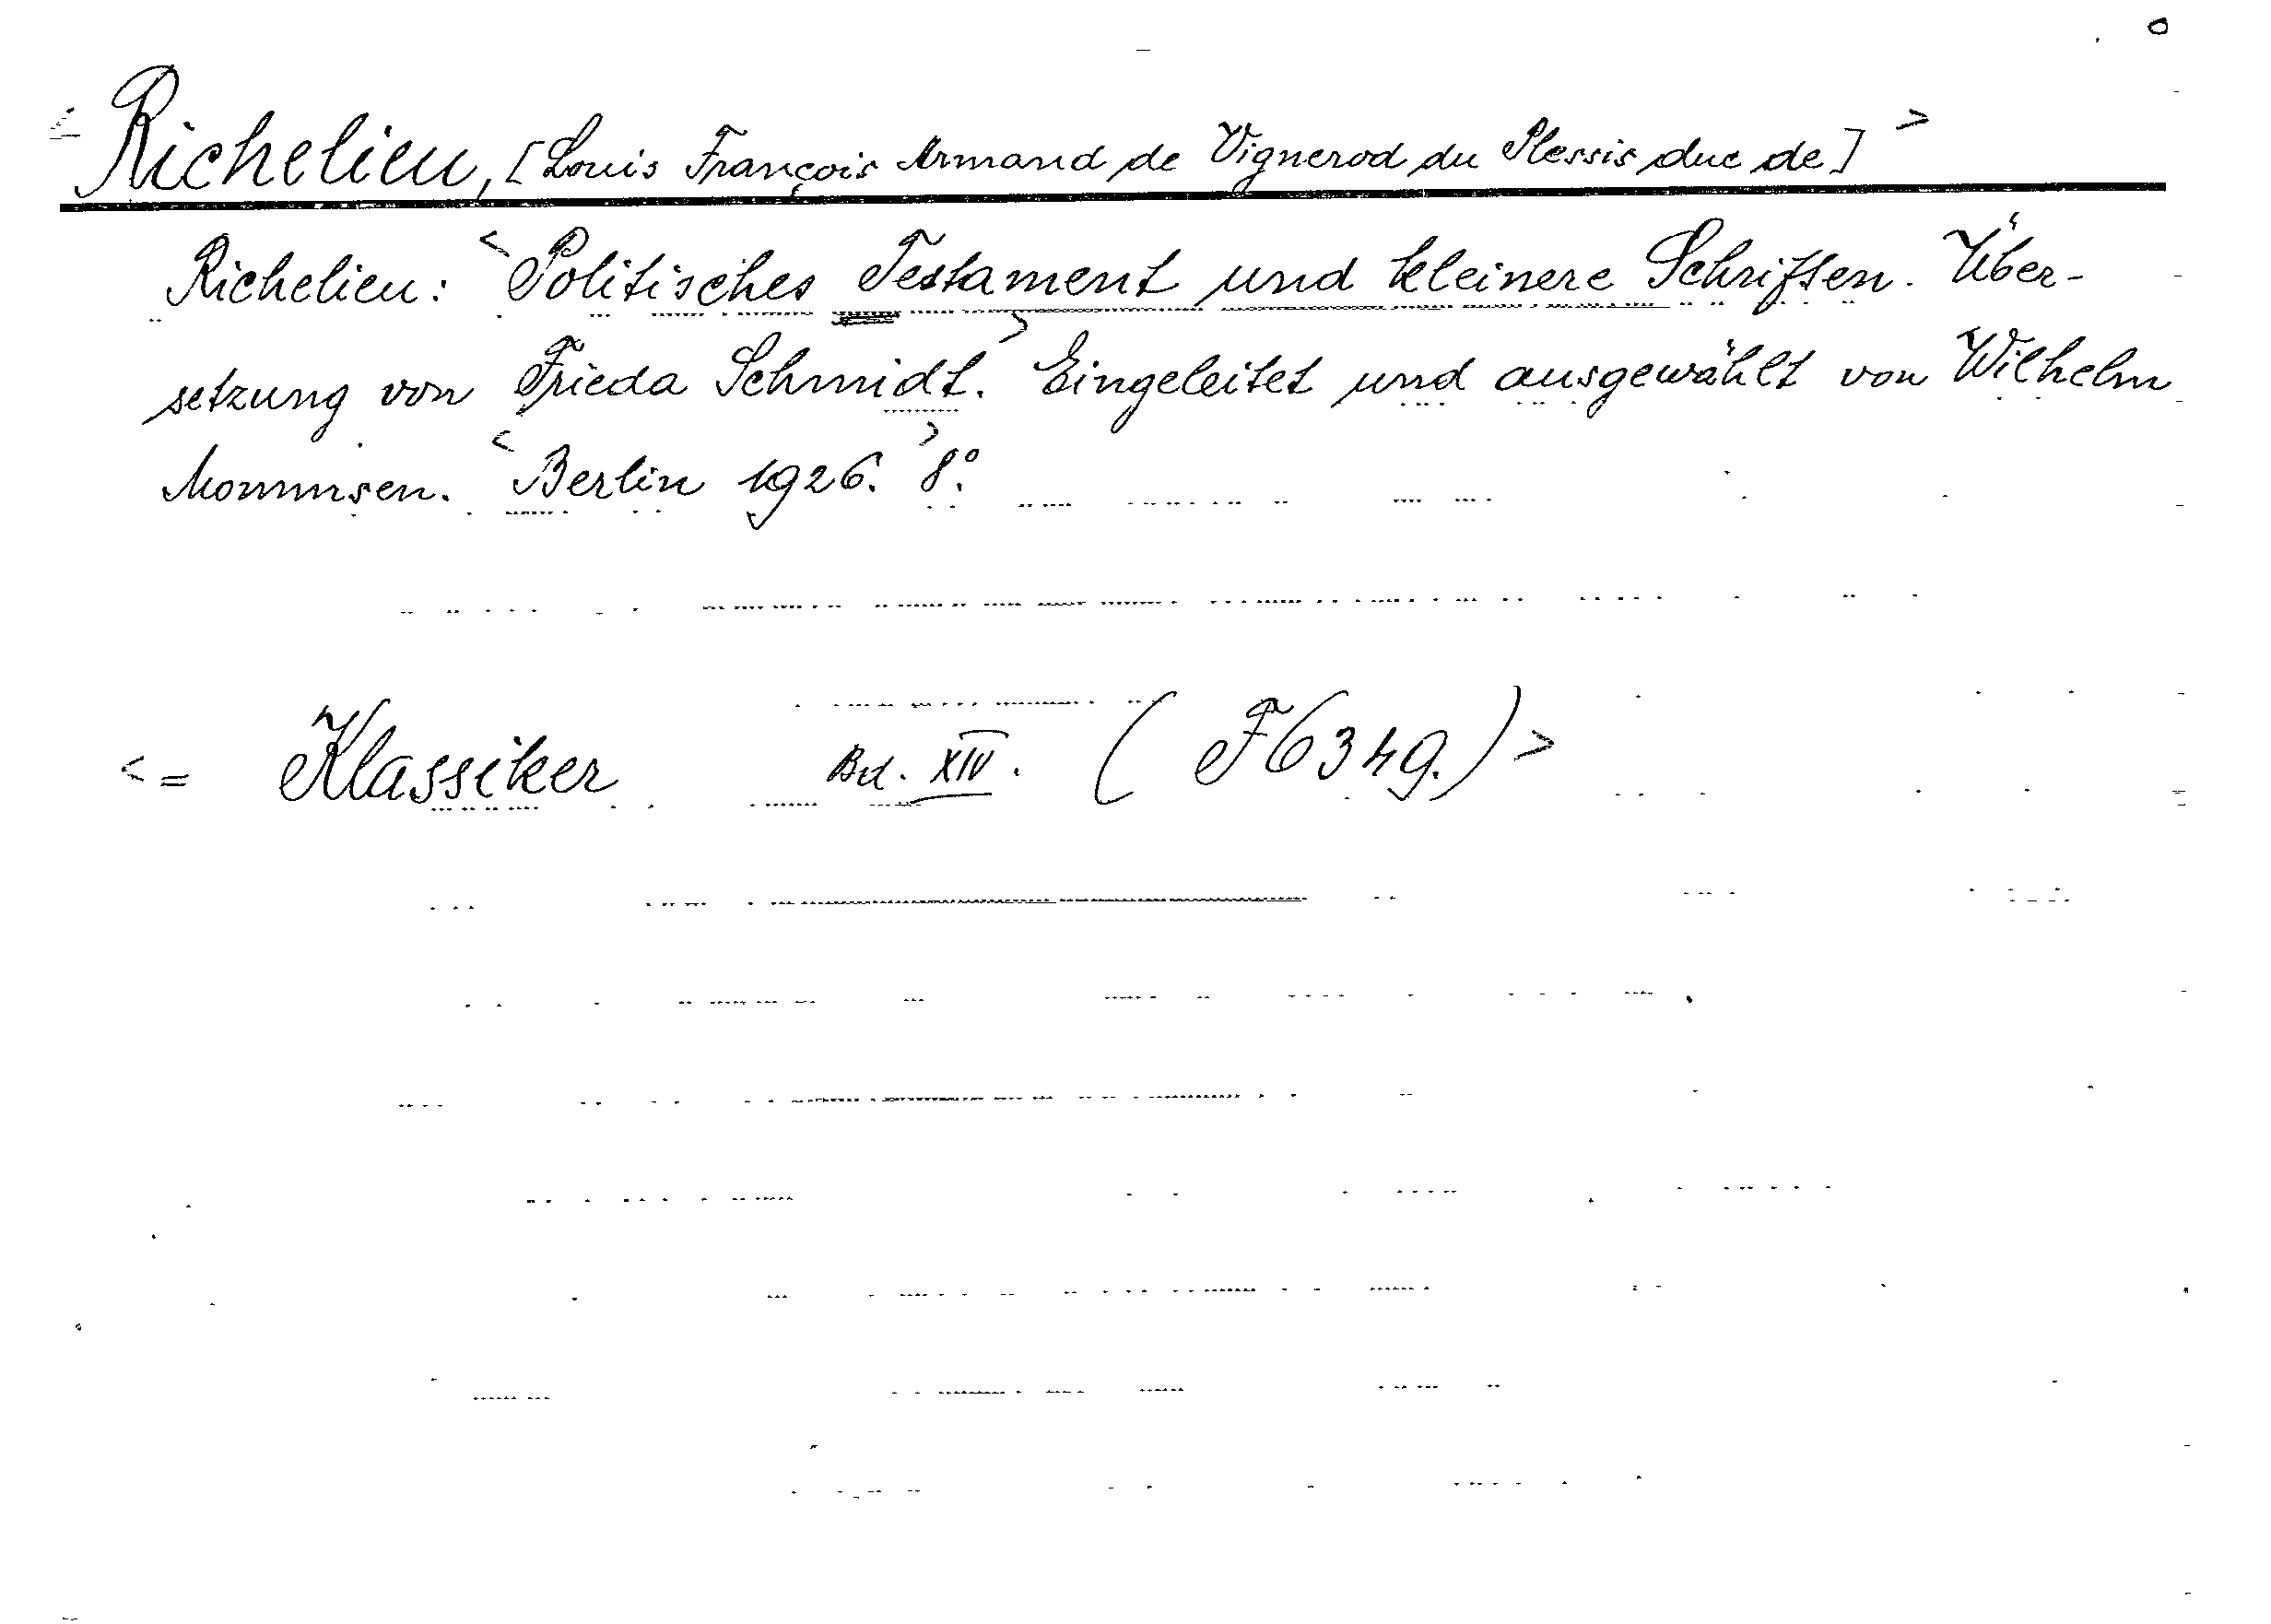 < Richelieu, [Louis François Armand de Vignerod du Plessis duc de] >
Richelieu: <Politisches Testament und kleinere Schriften. Über-
setzung von Frieda Schmidt.> Eingeleitet und ausgewählt von Wilhelm
Mommsen. <Berlin 1926.> 8°.
<= Klassiker Bd. XIV. (F6349.)>